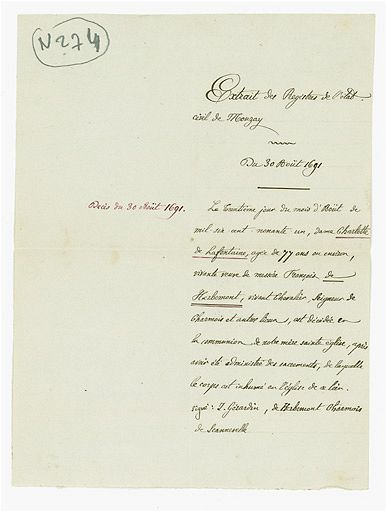 N 274
Extrait des Registres de l'état
civil de Mouzay
Du 30 Août 1691
Décès du 30 Août 1691.
Le trentième jour du mois d'Août de
mil six cent nonante un, dame Charlotte
de Lafontaine, agée de 77 ans ou environ,
vivante veuve de messire François de
Herbemont, vivant Chevalier, Seigneur de
Charmois et autres lieux, est décédée en
la communion de notre mère sainte église, après
avoir été administrée des sacrements, de laquelle
le corps est inhumé en l'église de ce lieu.
signé : J. Gérardin, de Herbemont Charmois
de